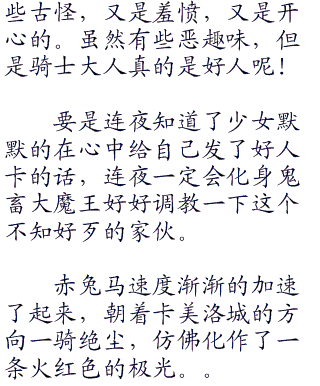 些古怪，又是羞愤，又是开
心的。虽然有些恶趣味，但
是骑士大人真的是好人呢！
要是连夜知道了少女默
默的在心中给自己发了好人
卡的话，连夜一定会化身鬼
畜大魔王好好调教一下这个
不知好歹的家伙。
赤兔马速度渐渐的加速
了起来，朝着卡美洛城的方
向一骑绝尘，仿佛化作了一
条火红色的极光。。